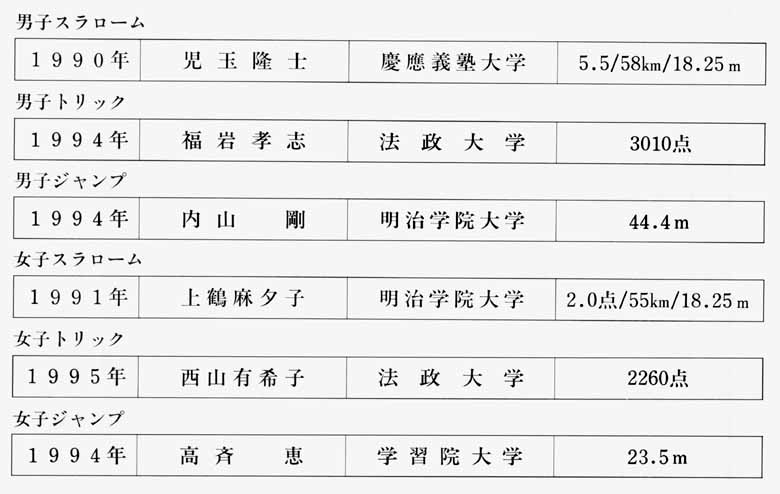 男子スラローム
1990年 児玉隆士 慶應義塾大学 5.5/58km/18.25m
男子トリック
1994年 福岩孝志 法政大学 3010点
男子ジャンプ
1994年 内山 剛 明治学院大学 44.4m
女子スラローム
1991年 上鶴麻夕子 明治学院大学 2.0点/55km/18.25m
女子トリック
1995年 西山有希子 法政大学 2260点
女子ジャンプ
1994年 高斉 恵 学習院大学 23.5m